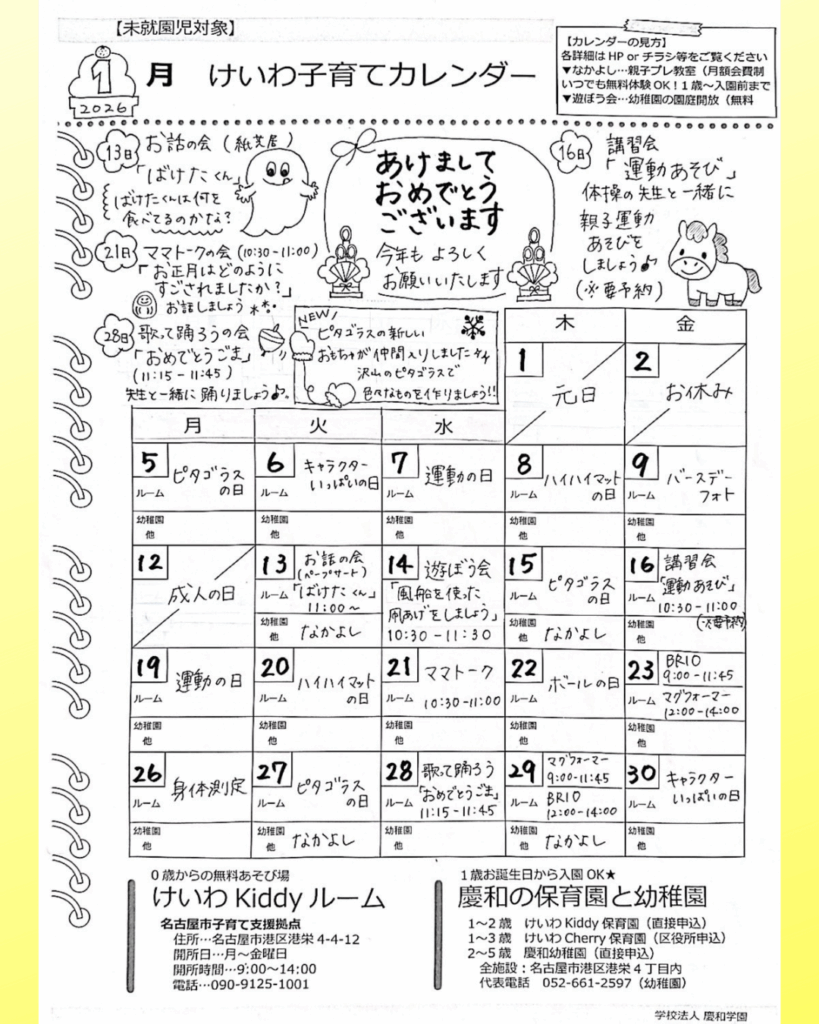 【未就園児対象】
1
2026
月 けいわ子育てカレンダー
【カレンダーの見方】
各詳細はHP or チラシ等をご覧ください
▼なかよし…親子プレ教室（月額会費制
いつでも無料体験OK！1歳～入園前まで
▼遊ぼう会…幼稚園の園庭開放（無料
13日 お話の会（紙芝居）
「ばけたくん」
ばけたくんは何を
食べてるのかな？
21日 ママトークの会（10:30-11:00）
「お正月はどのように
すごされましたか？」
お話しましょう
28日 歌って踊ろうの会
「おめでとうごま」
（11:15-11:45）
先生と一緒に踊りましょう♪。
あけまして
おめでとう
ございます
今年も よろしく
お願いいたします
16日 講習会
「運動あそび」
体操の先生と一緒に
親子運動
あそびを
しましょう♪
（※要予約）
NEW!
ピタゴラスの新しい
おもちゃが仲間入りしました
沢山のピタゴラスで
色々なものを作りましょう!!
月 火 水 木 金
1 元日
2 お休み
5 ピタゴラスの日
ルーム
幼稚園
他
6 キャラクターいっぱいの日
ルーム
幼稚園
他
7 運動の日
ルーム
幼稚園
他
8 ハイハイマットの日
ルーム
幼稚園
他
9 バースデーフォト
ルーム
幼稚園
他
12 成人の日
13 お話の会
（ペープサート）
ルーム 「ばけたくん」
11:00～
幼稚園
他 なかよし
14 遊ぼう会
「風船を使った
凧あげをしましょう」
10:30-11:30
15 ピタゴラスの日
ルーム
幼稚園
他 なかよし
16 講習会
ルーム 「運動あそび」
10:30-11:00
（※要予約）
幼稚園
他
19 運動の日
ルーム
幼稚園
他
20 ハイハイマットの日
ルーム
幼稚園
他
21 ママトーク
ルーム 10:30-11:00
幼稚園
他
22 ボールの日
ルーム
幼稚園
他
23 BRIO
9:00-11:45
ルーム マグフォーマー
12:00-14:00
幼稚園
他
26 身体測定
ルーム
幼稚園
他
27 ピタゴラスの日
ルーム
幼稚園
他 なかよし
28 歌って踊ろう
ルーム 「おめでとうごま」
11:15-11:45
幼稚園
他
29 マグフォーマー
9:00-11:45
ルーム BRIO
12:00-14:00
幼稚園
他 なかよし
30 キャラクターいっぱいの日
ルーム
幼稚園
他
0歳からの無料あそび場
けいわ Kiddy ルーム
名古屋市子育て支援拠点
住所…名古屋市港区港栄4-4-12
開所日…月～金曜日
開所時間…9:00～14:00
電話…090-9125-1001
1歳お誕生日から入園OK★
慶和の保育園と幼稚園
1～2歳 けいわ Kiddy 保育園（直接申込）
1～3歳 けいわ Cherry 保育園（区役所申込）
2～5歳 慶和幼稚園（直接申込）
全施設：名古屋市港区港栄4丁目内
代表電話 052-661-2597（幼稚園）
学校法人 慶和学園